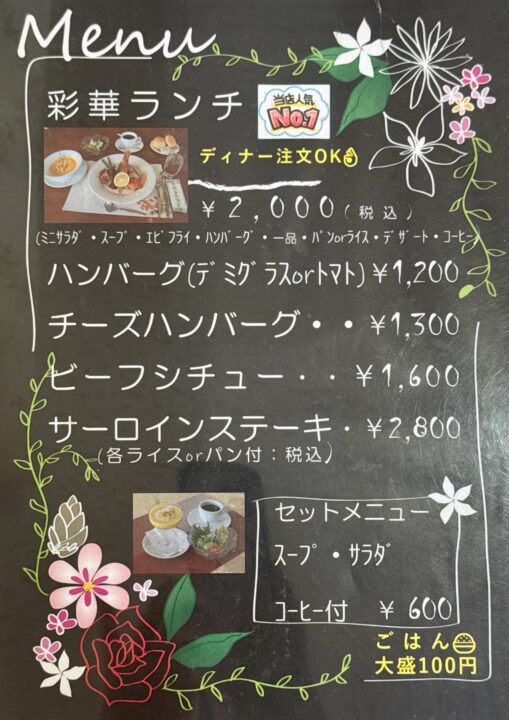 Menu
彩華ランチ
当店人気
No.1
ディナー注文OK
￥2,000(税込)
(ﾐﾆｻﾗﾀﾞ・ｽｰﾌﾟ・ｴﾋﾞﾌﾗｲ・ﾊﾝﾊﾞｰｸﾞ・一品・ﾊﾟﾝorﾗｲｽ・ﾃﾞｻﾞｰﾄ・ｺｰﾋｰ
ハンバーグ(ﾃﾞﾐｸﾞﾗｽorﾄﾏﾄ)￥1,200
チーズハンバーグ・・￥1,300
ビーフシチュー・・￥1,600
サーロインステーキ・￥2,800
(各ライスorパン付：税込)
セットメニュー
ｽｰﾌﾟ・ｻﾗﾀﾞ
ｺｰﾋｰ付 ￥600
ごはん
大盛100円